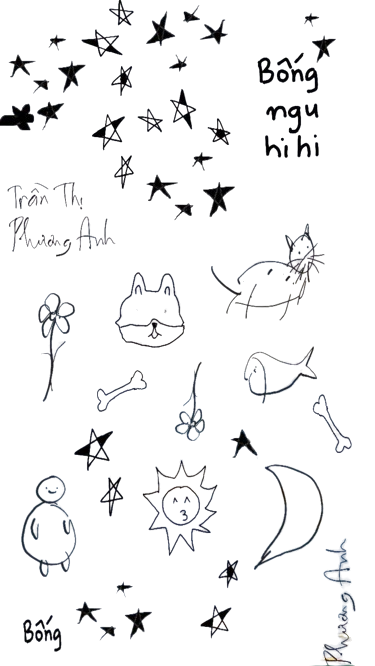 Bống
ngu
hi hi
Trần Thị
Phương Anh
Bống
Phương Anh